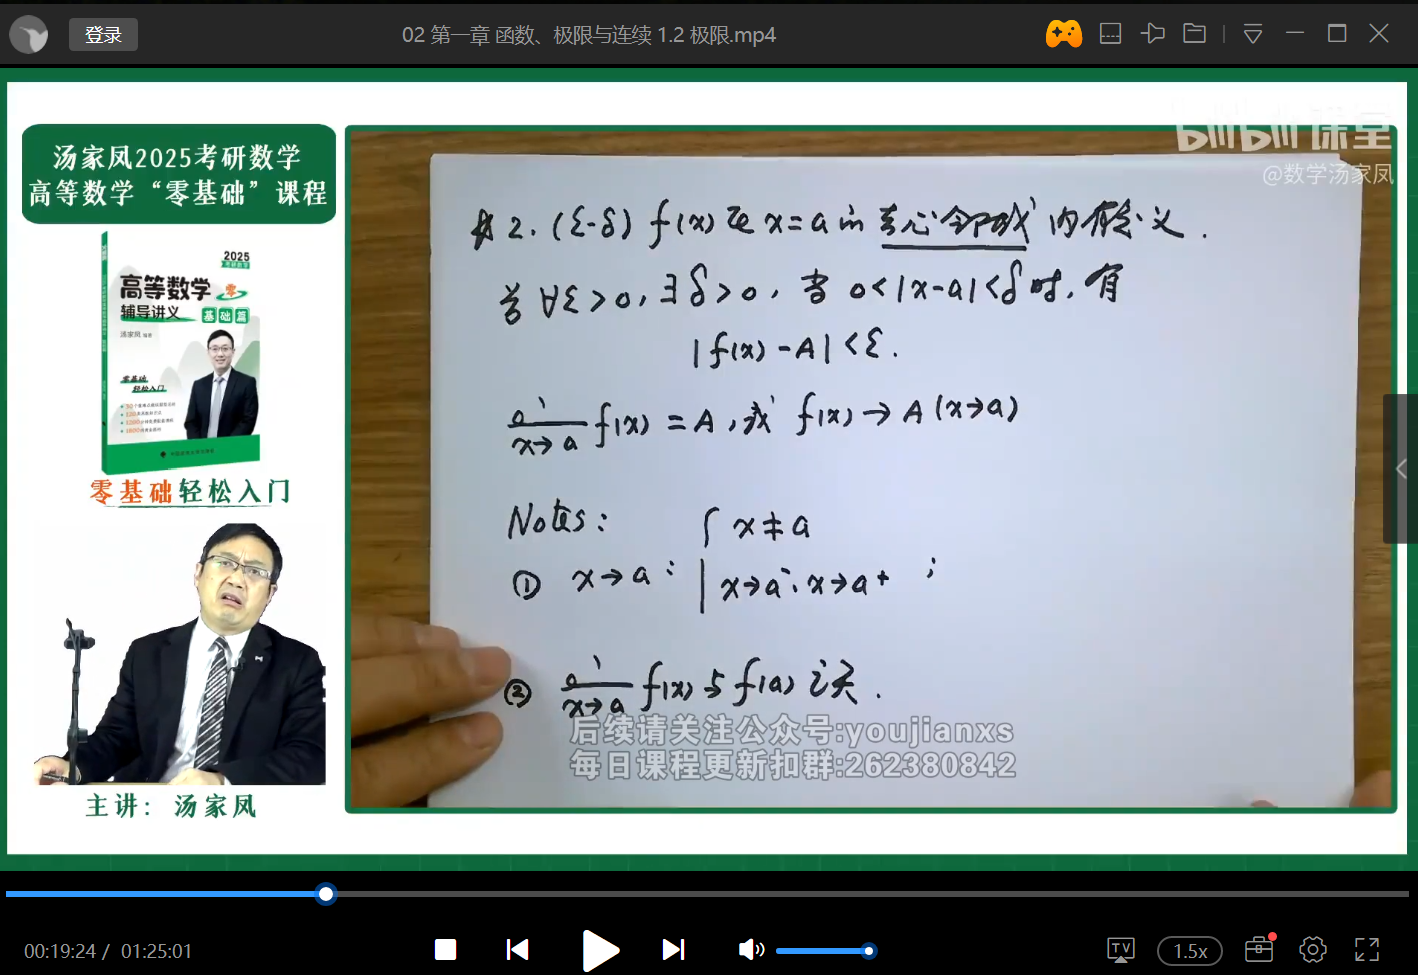 登录
02 第一章 函数、极限与连续 1.2 极限.mp4
汤家凤2025考研数学
高等数学“零基础”课程
2025
高等数学 零
辅导讲义 基础篇
汤家凤
零基础
轻松入门
零基础轻松入门
主讲：汤家凤
bilibili 课堂
@数学汤家凤
2. (ε-δ) f(x)在x=a的去心邻域内有定义.
若∀ε>0, ∃δ>0, 当 0<|x-a|<δ时, 有
|f(x)-A|<ε.
x→a f(x)=A, 或 f(x)→A (x→a)
Notes:
① x→a: { x≠a
x→a⁻, x→a⁺ ;
② x→a f(x)与f(a)无关.
后续请关注公众号:youjianxs
每日课程更新扣群:262380842
00:19:24 / 01:25:01
TV
1.5x